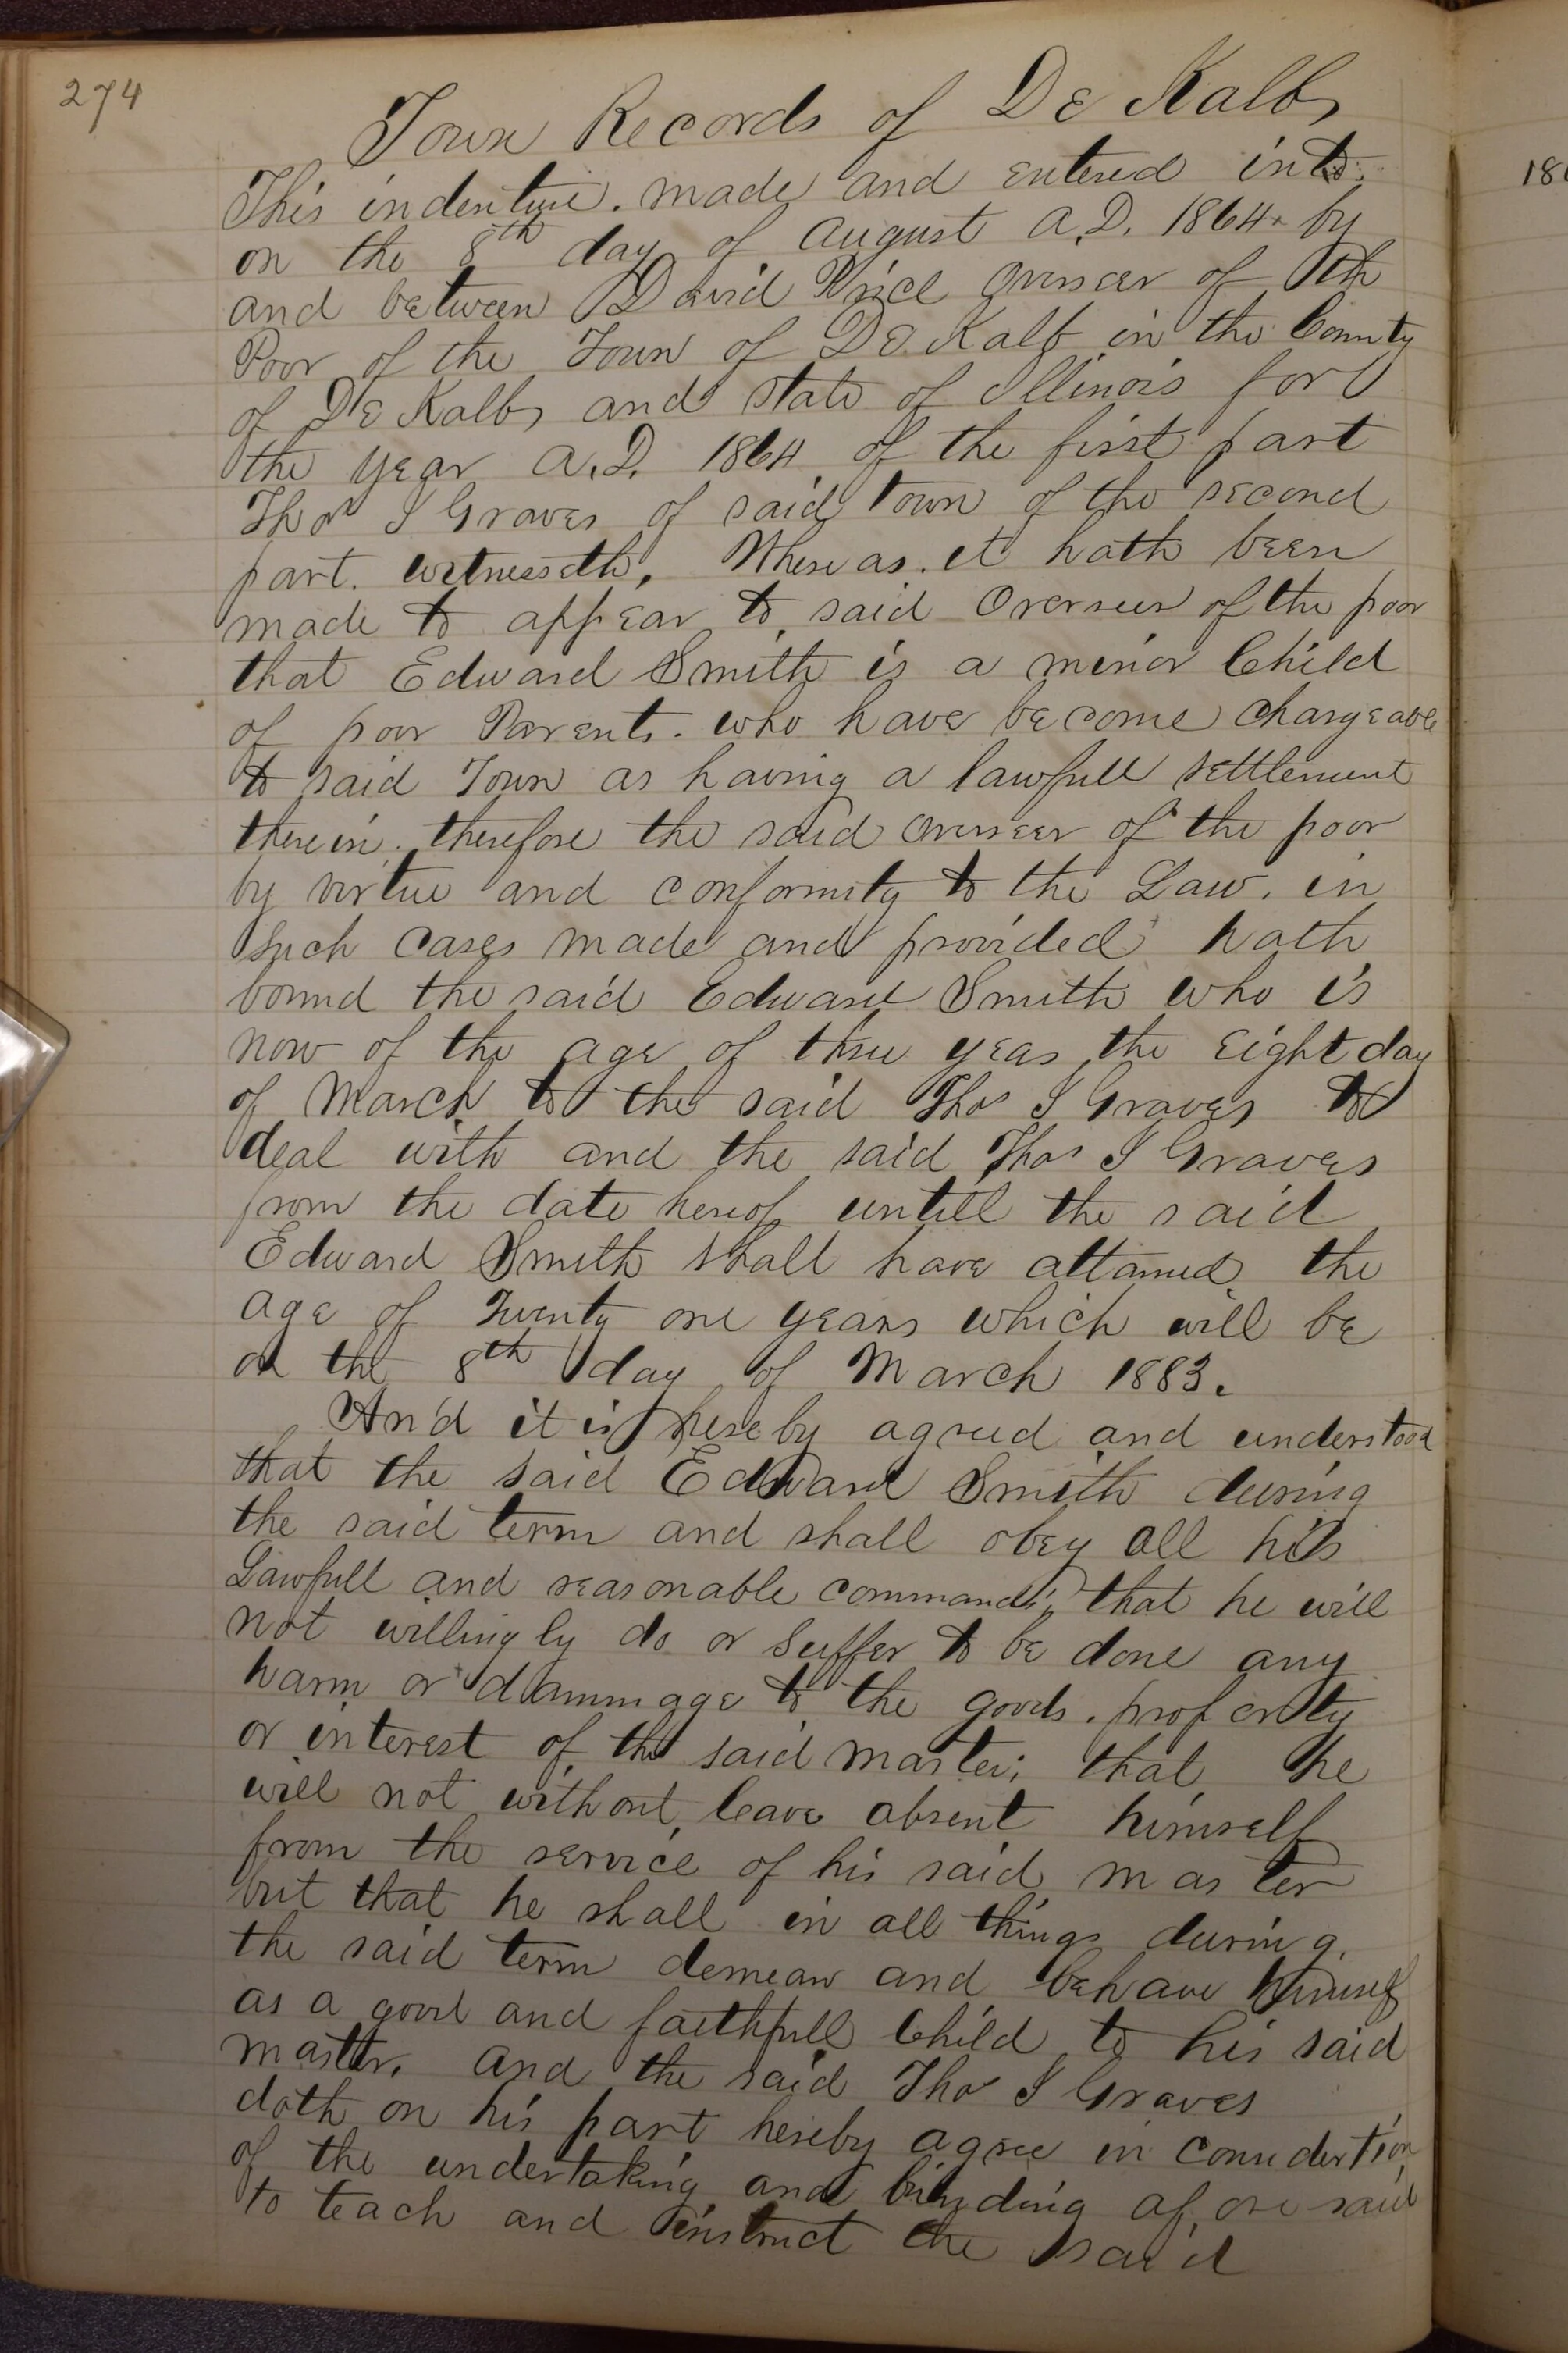 274
Town Records of De Kalb
This indenture. made and entered into
on the 8th day of August A.D. 1864. by
and between David Price Overseer of th
Poor of the Town of De Kalb in the County
of De Kalb and state of Illinois for
the year A.D. 1864 of the first part
Thos I Graves of said Town of the second
part. witnesseth, Whereas. it hath been
made to appear to said Overseer of the poor
that Edward Smith is a minor Child
of poor Parents. who have become chargeable
to said Town as having a lawfull settlement
therein. therefore the said Overseer of the poor
by virtue and conformity to the Law. in
such cases made and provided hath
bound the said Edward Smith who is
now of the age of three years the eight day
of March to the said Thos I Graves to
deal with and the said Thos I Graves
from the date hereof untill the said
Edward Smith shall have attained the
age of Twenty one years which will be
on the 8th day of March 1883.
And it is hereby agreed and understood
that the said Edward Smith during
the said term and shall obey all his
Lawfull and reasonable commands, that he will
not willingly do or suffer to be done any
harm or dammage to the goods. property
or interest of the said master; that he
will not without leave absent himself
from the service of his said master
but that he shall in all things during
the said term demean and behave himself
as a good and faithfull Child to his said
master. and the said Thos I Graves
doth on his part hereby agree in considertion
of the undertaking and binding afore said
to teach and instruct the said
186